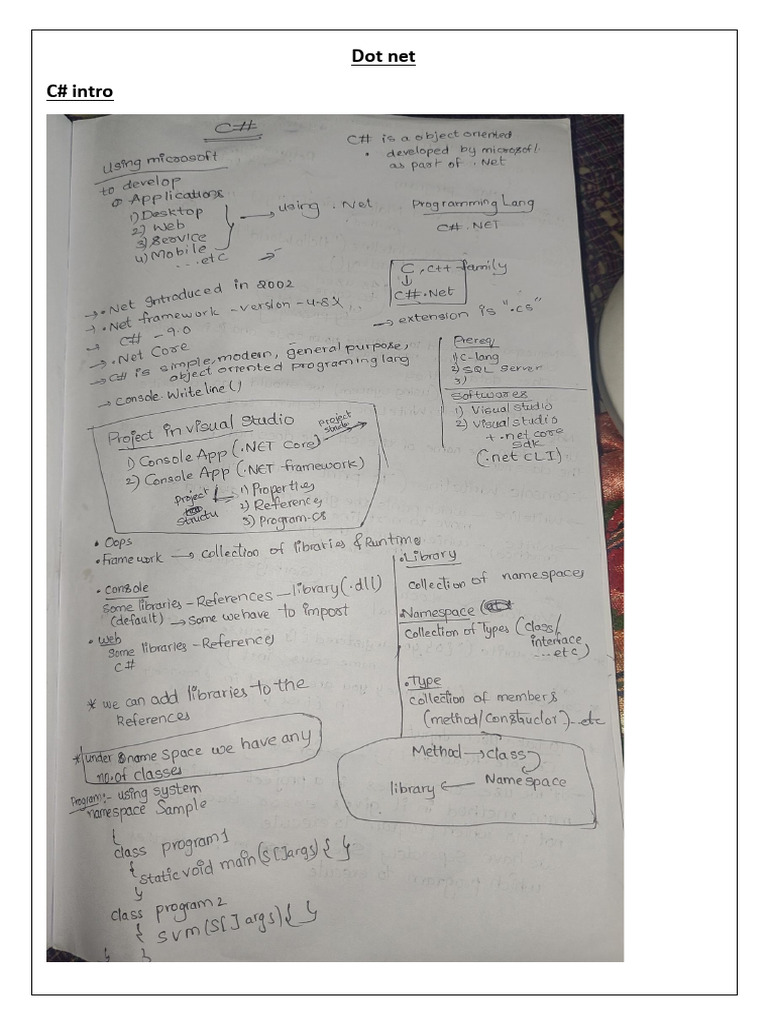 Dot net
C# intro
C#
Using microsoft
to develop
Applications
1) Desktop
2) Web
3) Service
4) Mobile
...etc
using .Net
C# is a object oriented
• developed by microsoft
as part of .Net
Programming Lang
C# .NET
C, C++ family
C#.Net
→ extension is ".cs"
→ .Net Introduced in 2002
→ .Net framework - version - 4.8X
→ C# - 9.0
→ .Net Core
→ C# is simple, modern, general purpose,
object oriented programing lang
→ Console.Writeline()
Prereq
1) C-lang
2) SQL Server
3)
Softwares
1) Visual studio
2) Visual studio
+ .net core
sdk
(.net CLI)
Project in visual studio
1) Console App (.NET Core)
Project
2) Console App (.NET framework)
Project
structu
1) Properties
2) References
3) Program.cs
• Oops
• Framework → collection of libraries & Runtime
• console
Some libraries - References - library (.dll)
(default) → some we have to import
• web
Some libraries - References
C#
* we can add libraries to the
References
* under name space we have any
no. of classes
• Library
collection of namespaces
• Namespace
Collection of Types (class/
interface
...etc)
• Type
collection of members
(method/constructor)...etc
Method → class
Namespace
library ←
Program:- using system
namespace Sample
{
class program1
{
static void main(s[]args) { }
}
class program2
{ svm(s[] args) { }
} }